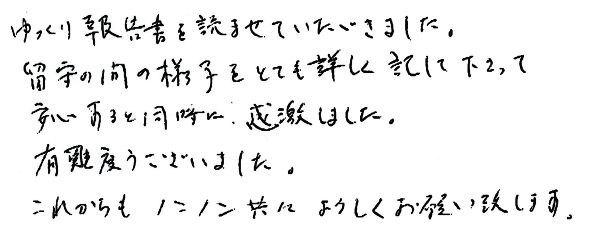 ゆっくり報告書を読ませていただきました。
留守の間の様子をとても詳しく記して下さって
安心あると同時に、感激しました。
有難度うございました。
これからも ノンノン共に よろしくお願い致します。